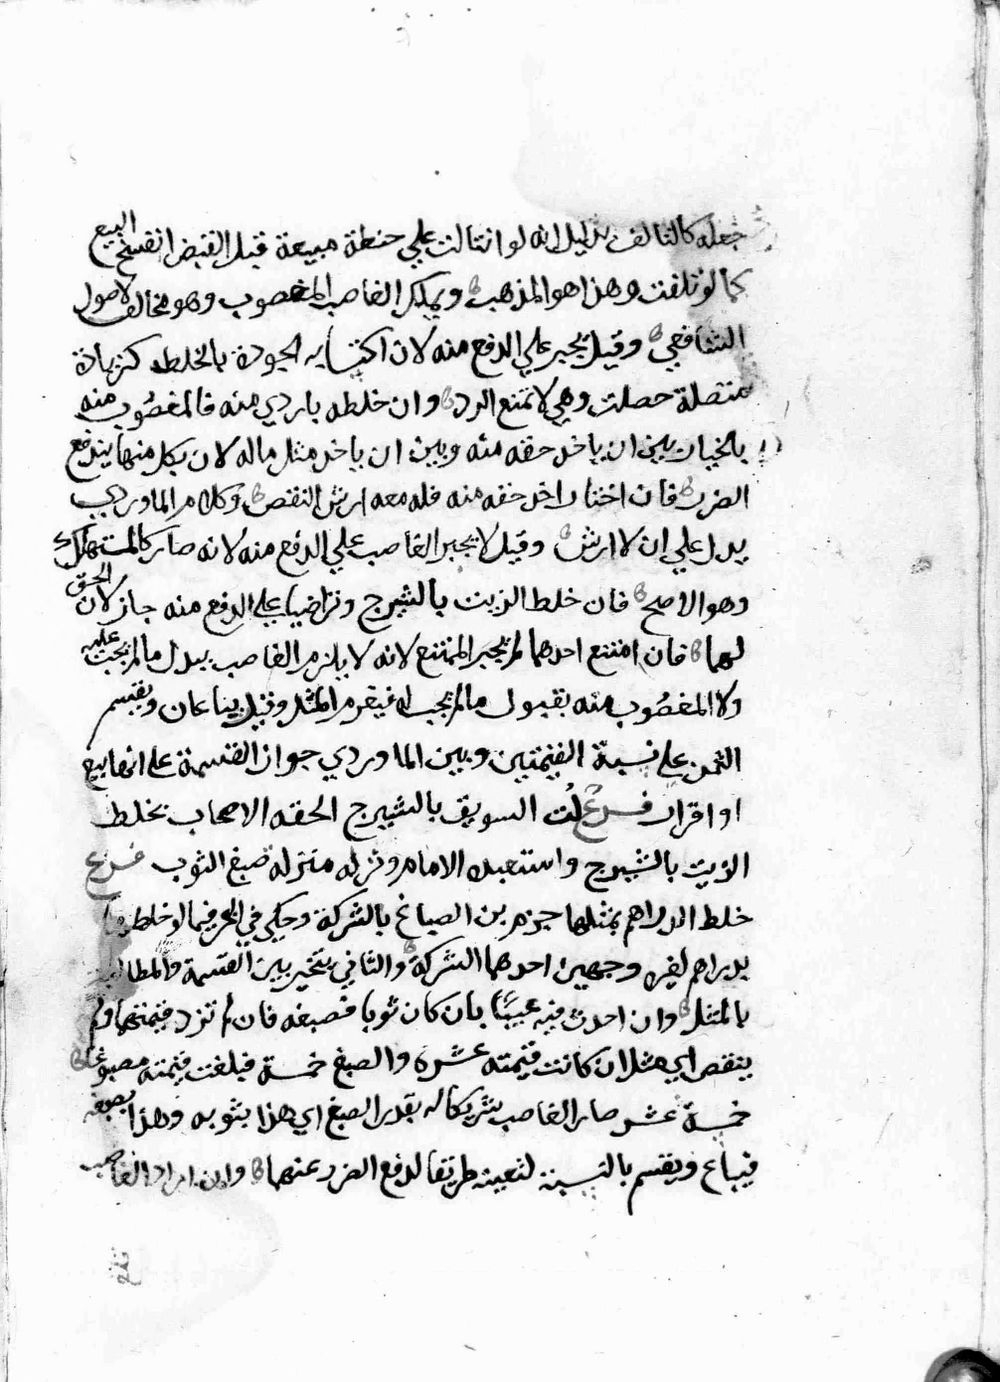 جعله كالتالف بدليل انه لو انثالت علي حنطة مبيعة قبل القبض انفسخ البيع
كما لو تلفت وهذا هو المذهب ويملك الغاصب المغصوب وهو مخالف لاصول
الشافعي وقيل يجبر علي الدفع منه لان اكتسابه الجودة بالخلط كزيادة
متصلة حصلت وهي لا تمنع الرد وان خلطه باردي منه فالمغصوب منه
بالخيار بين ان ياخذ حقه منه وبين ان ياخذ مثل ماله لان بكل منهما يندفع
الضرر فان اختار اخذ حقه منه فله معه ارش النقص وكلام الماوردي
يدل علي ان لا ارش وقيل لا يجبر الغاصب علي الدفع منه لانه صار كالمستهلك
وهو الاصح فان خلط الزيت بالشيرج وتراضيا علي الدفع منه جاز لان الحق
لهما فان امتنع احدهما لم يجبر الممتنع لانه لا يلزم الغاصب بدل ما لم يجب عليه
ولا المغصوب منه بقبول ما لم يجب له فيغرم المثل وقيل يباعان ويقسم
الثمن علي نسبة القيمتين وبين الماوردي جواز القسمة علي انها بيع
او اقرار فرع لت السويق بالشيرج الحقه الاصحاب بخلط
الزيت بالشيرج واستبعده الامام ونزله منزلة صبغ الثوب فرع
خلط الدراهم بمثلها جزم بن الصباغ بالشركة وحكي في البحر فيما لو خلطها
بدراهم لغيره وجهين احدهما الشركة والثاني يتخير بين القسمة والمطالبة
بالمثل وان احدث فيه عيبًا بان كان ثوبا فصبغه فان لم تزد قيمتهما ولم
ينقص اي مثل ان كانت قيمته عشرة والصبغ خمسة فبلغت قيمته مصبوغا
خمسة عشر صار الغاصب شريكا له بقدر الصبغ اي هذا بثوبه وهذا بصبغه
فيباع ويقسم بالنسبة لتعينه طريقا لدفع الضرر عنهما وان اراد الغاصب